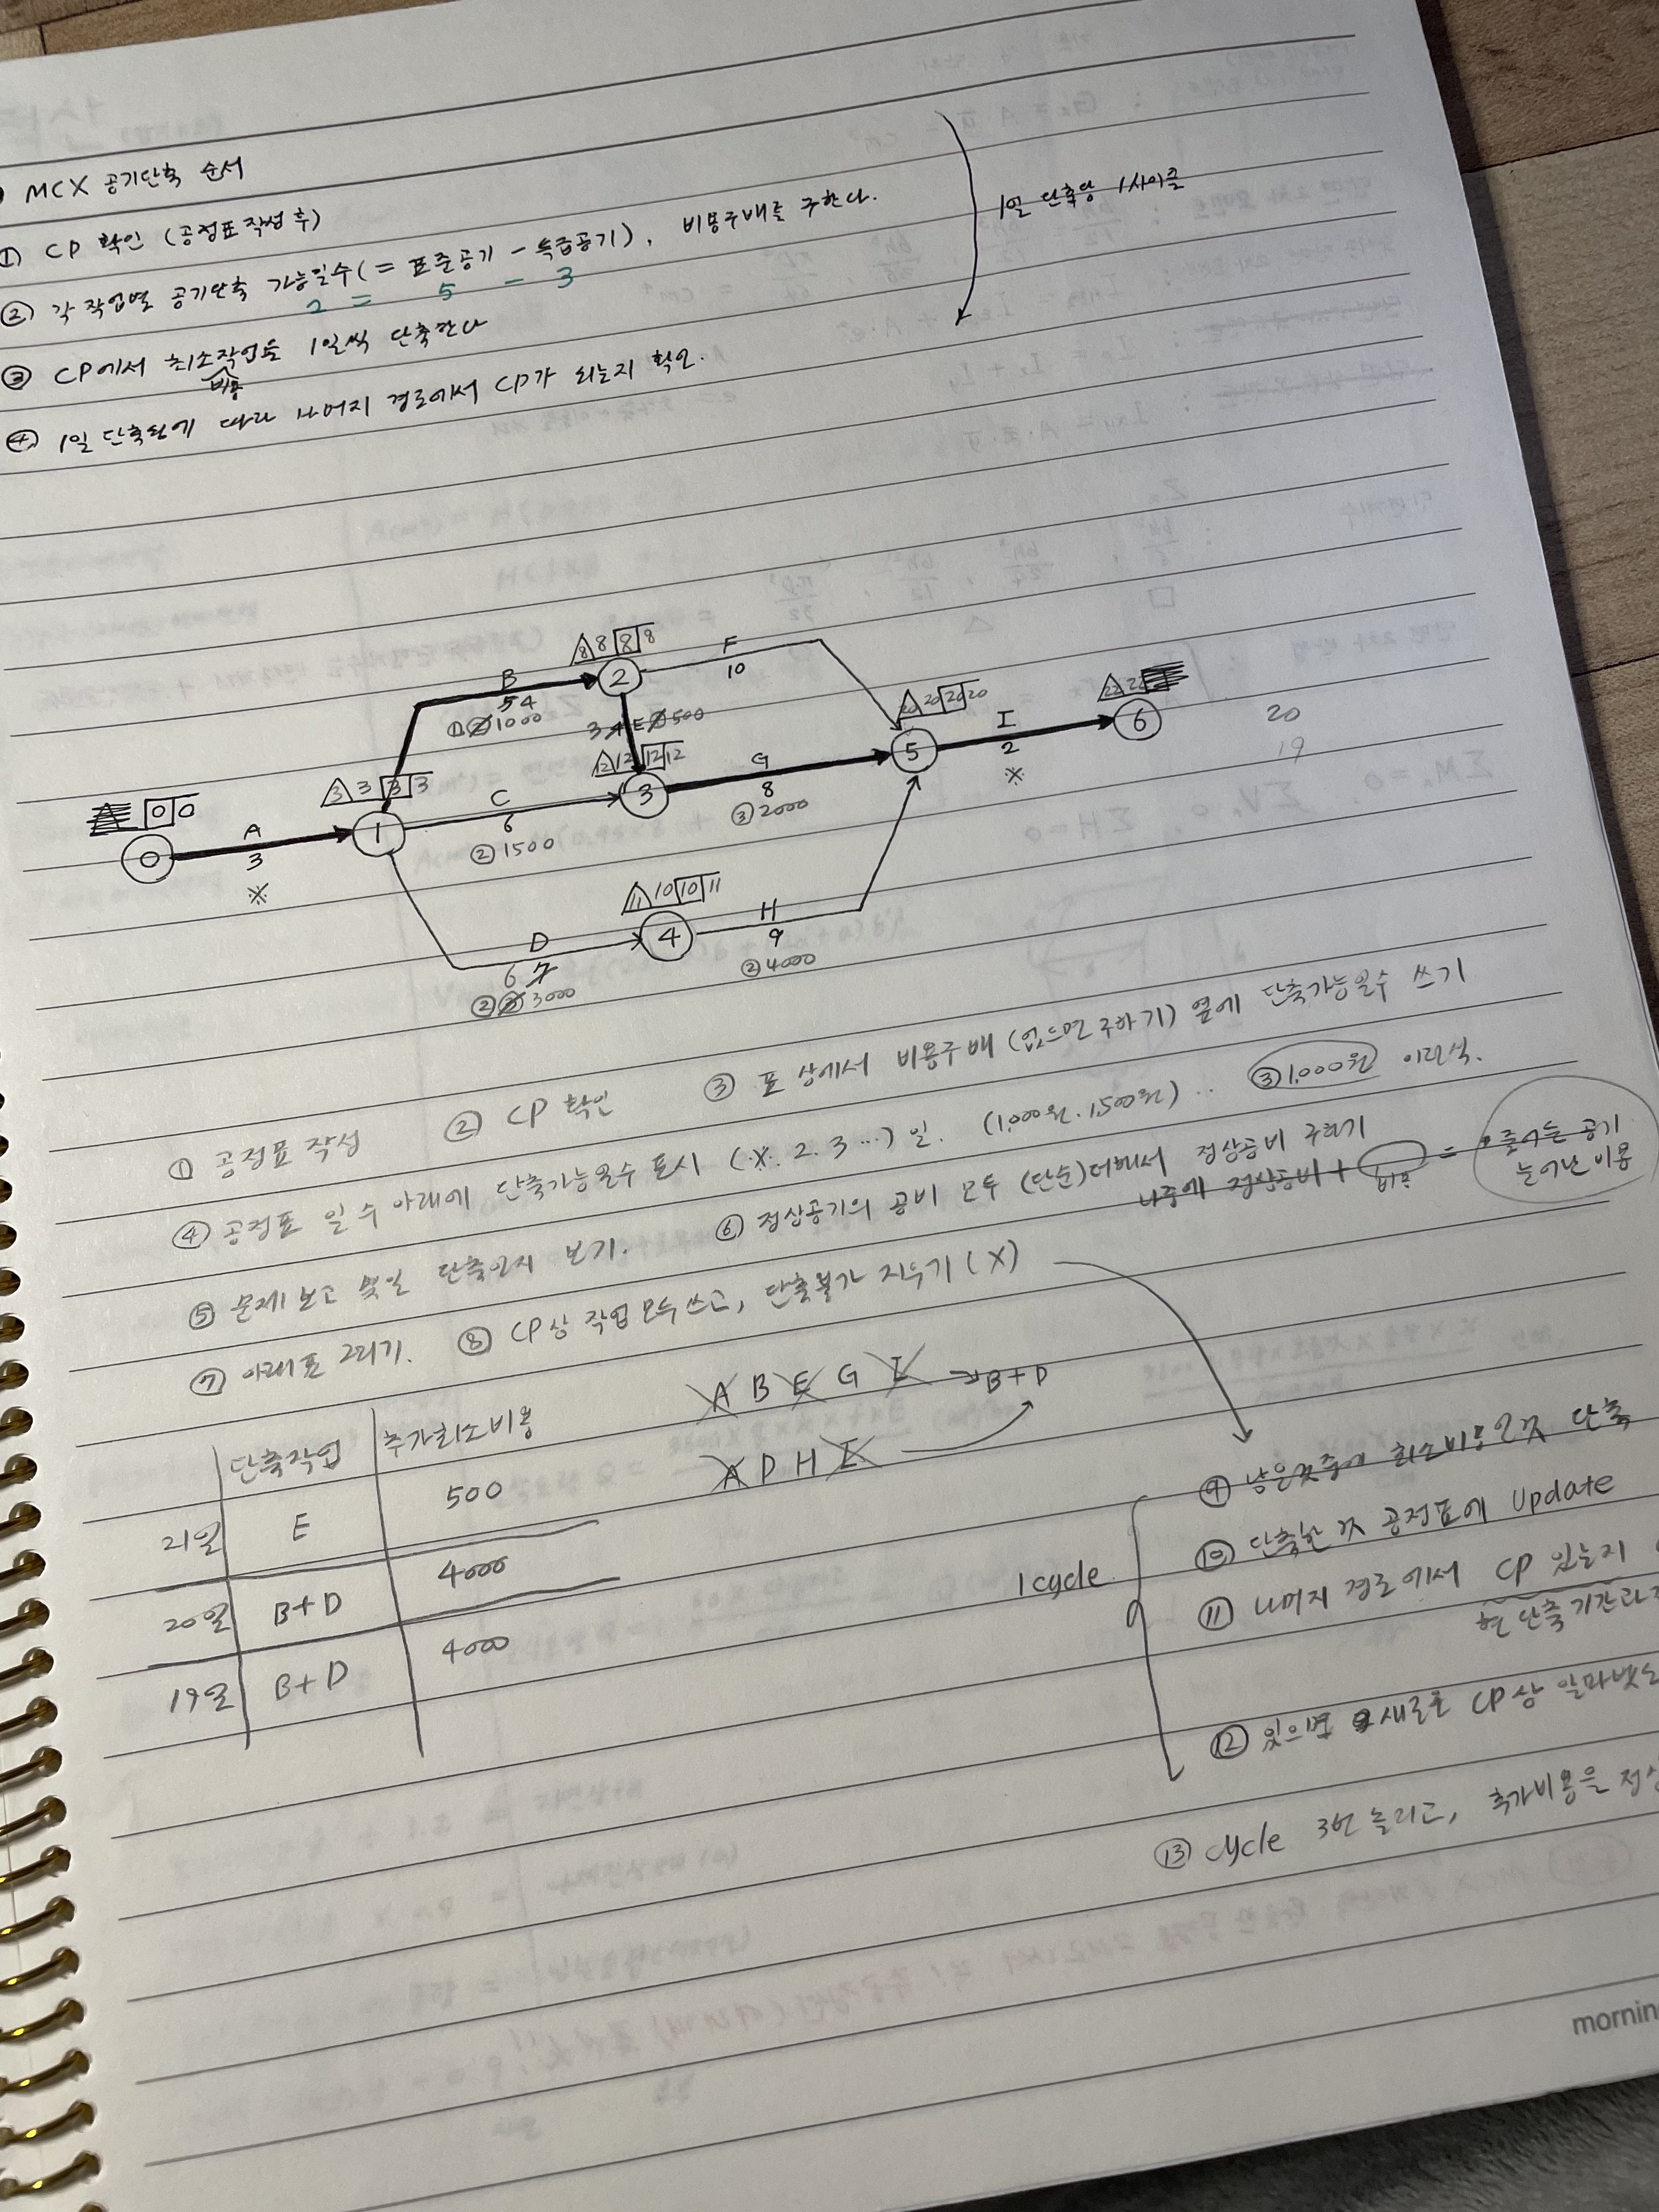 MCX 공기단축 순서
① CP 확인 (공정표작성 후)
② 각 작업별 공기단축 가능일수(= 표준공기 - 특급공기), 비용구배를 구한다.
2 = 5 - 3
③ CP에서 최소작업을 1일씩 단축한다
비용
④ 1일 단축됨에 따라 나머지 경로에서 CP가 되는지 확인.
1일 단축당 1사이클
8 8 8 8
B
5 4
① 2 1000
2
F
10
3 4 E 2 500
20 20 20 20
22 22
I
2
※
6
20
19
5
12 12 12 12
G
8
③ 2000
3
3 3 3 3
C
6
② 1500
1
0 0
0
A
3
※
11 10 10 11
D
6 7
② 3 3000
4
H
9
② 4000
① 공정표 작성 ② CP 확인 ③ 표 상에서 비용구배 (없으면 구하기) 옆에 단축가능일수 쓰기
(1,000원, 1,500원) .. ③ 1,000원 이런식.
④ 공정표 일수 아래에 단축가능일수 표시 (※, 2, 3 …) 일.
⑤ 문제보고 몇일 단축인지 보기. ⑥ 정상공기의 공비 모두 (단순)더해서 정상공비 구하기
나중에 정상공비 + = 줄어든 공기
비용 늘어난 비용
⑦ 아래표 그리기. ⑧ CP상 작업 모두쓰고, 단축불가 지우기 (X)
단축작업 추가최소비용
21일 E 500
20일 B+D 4000
19일 B+D 4000
A B E G I → B+D
A D H I
1 cycle
⑨ 남은것중에 최소비용인것 단축
⑩ 단축한 것 공정표에 Update
⑪ 나머지 경로에서 CP 있는지
현 단축기간과
⑫ 있으면 새로운 CP상
⑬ cycle 3번 돌리고, 추가비용을
mornin